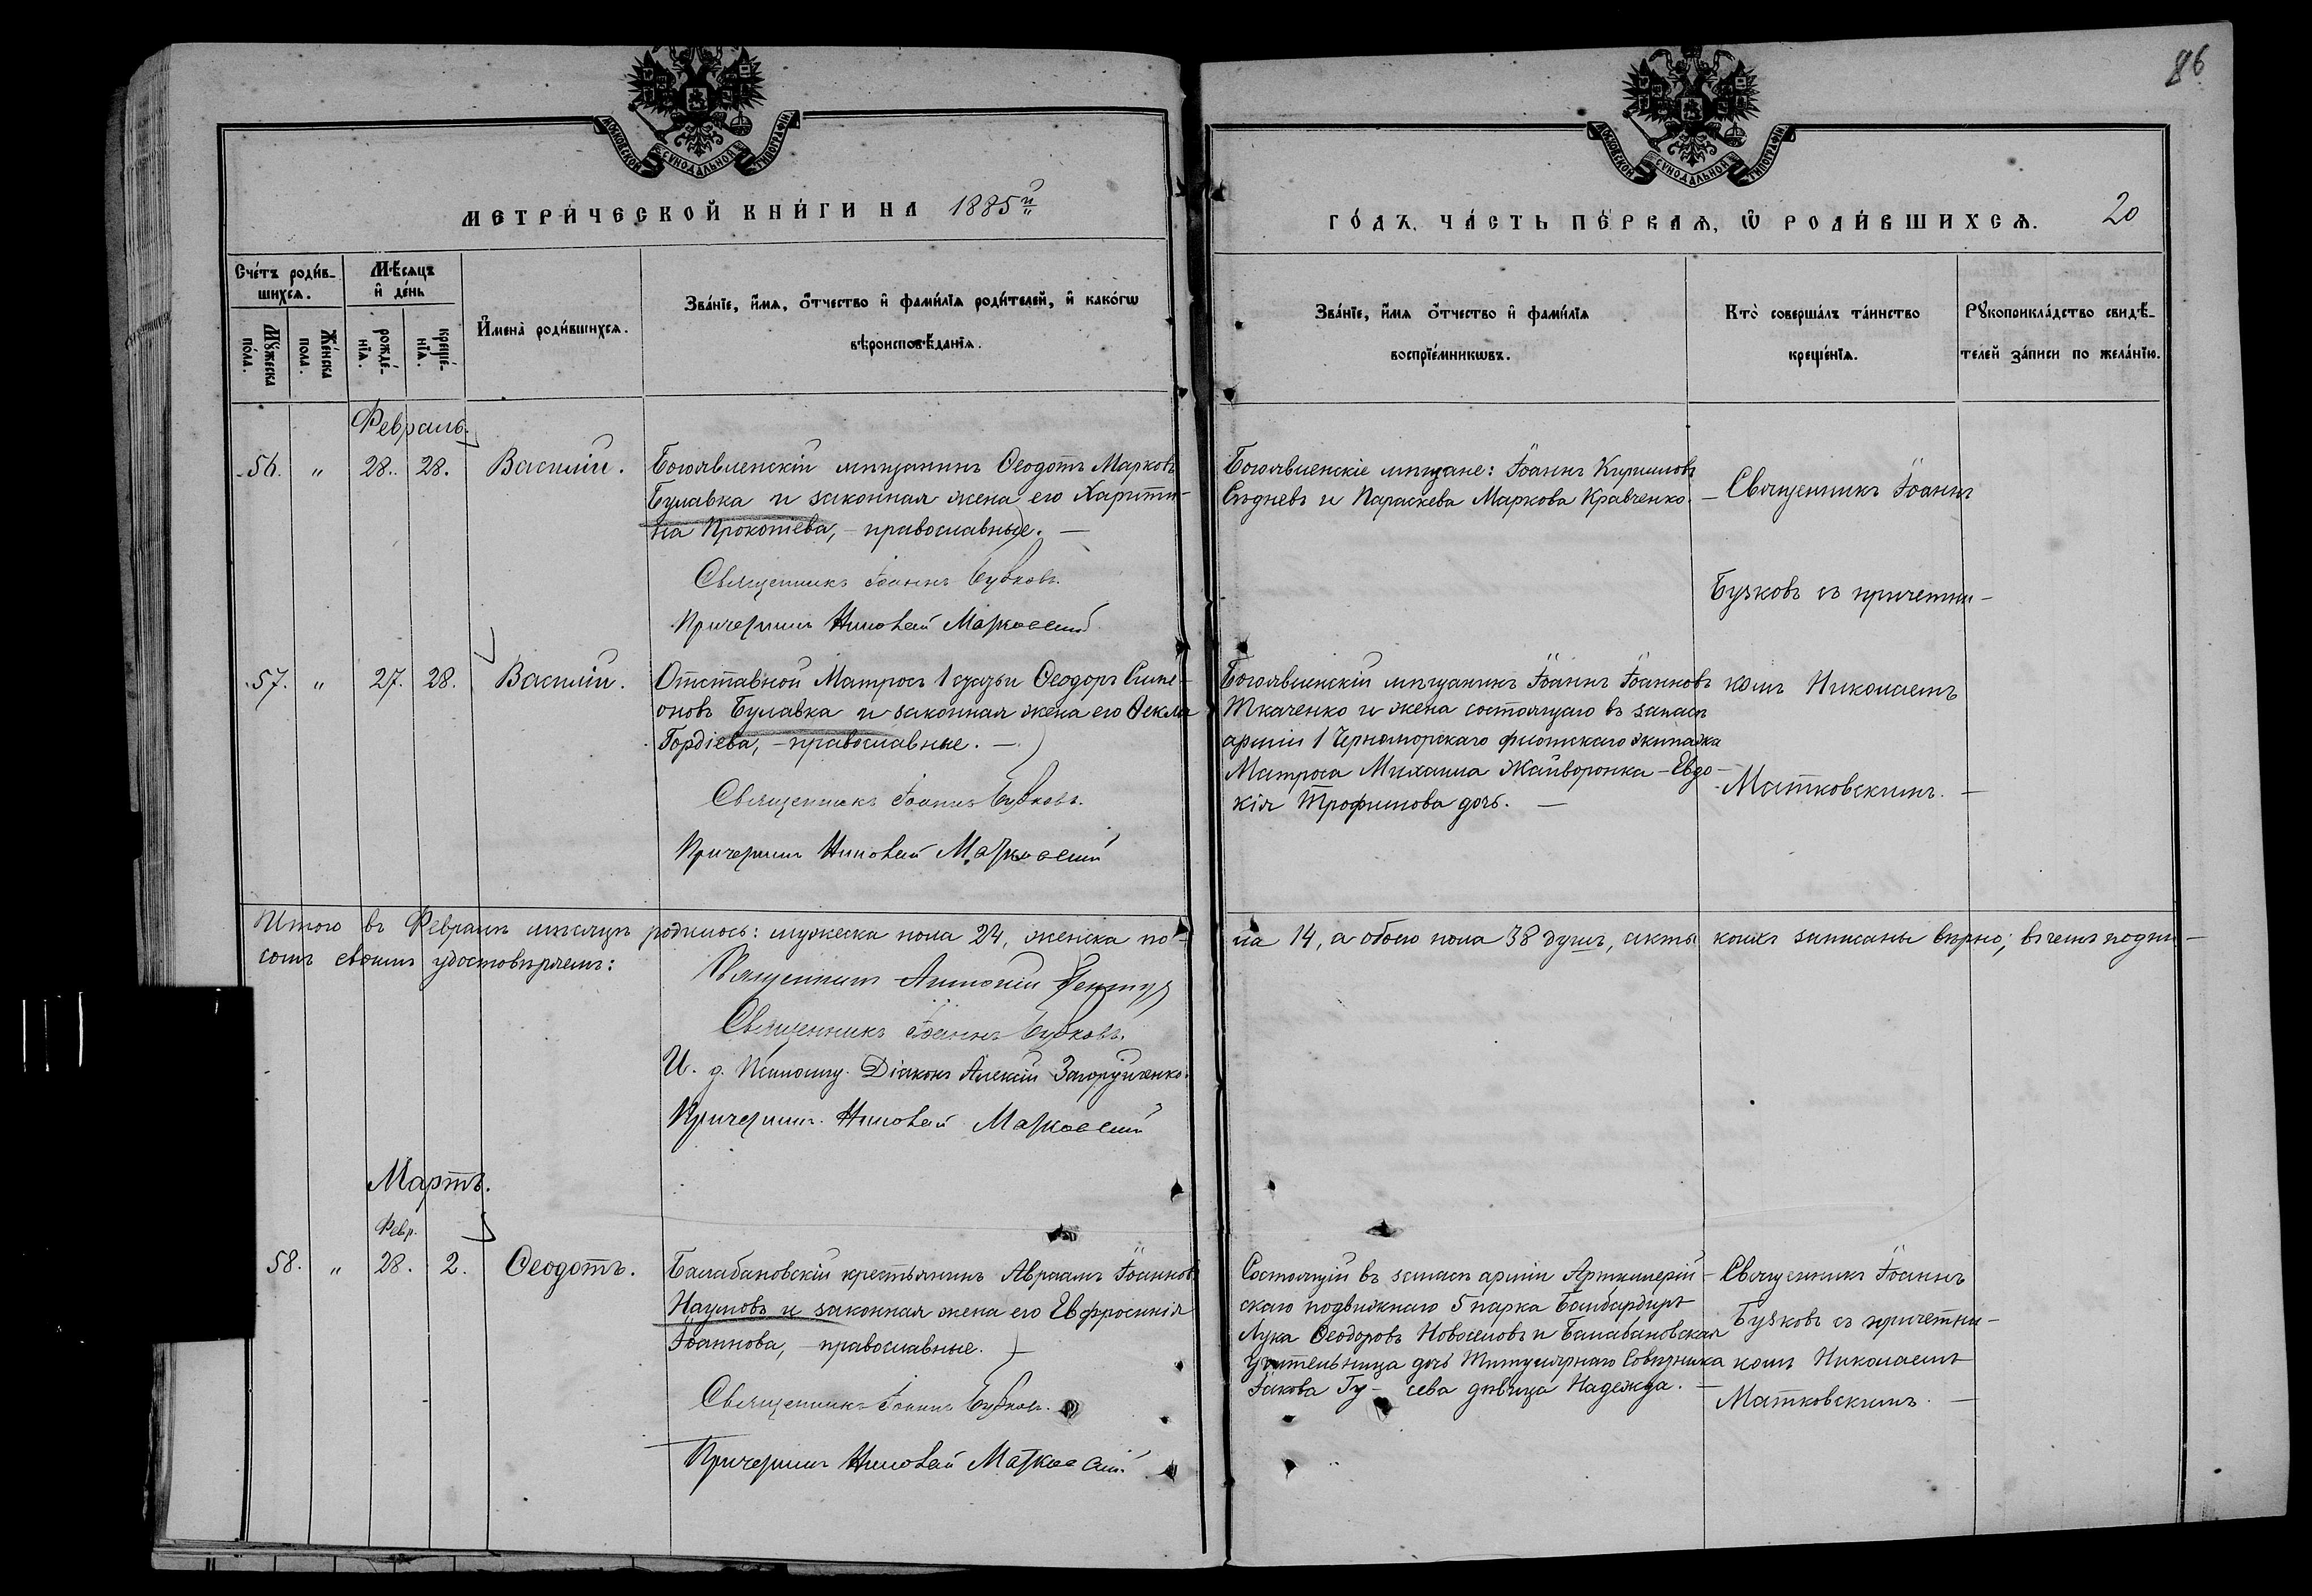 86
МОСКОВСКОЙ СѴНОДАЛЬНОЙ ТИПОГРАФІИ
МОСКОВСКОЙ СѴНОДАЛЬНОЙ ТИПОГРАФІИ
МЕТРИ́ЧЕСКОЙ КНИ́ГИ НА 1885й
ГО́ДЪ, ЧА́СТЬ ПЕ́РВАѦ, Ѡ РОДИ́ВШИХСѦ. 20
Сче́тъ роди́в-
шихсѧ.
Мѣ́сѧцъ
и де́нь
Мꙋ́жеска по́ла.
Же́нска пола.
рожде́-
нїѧ.
креще́-
нїѧ.
И҆мена̀ роди́вшихсѧ.
Зва́нїе, и҆́мѧ, ѻ҆́тчество и҆ фами́лїѧ роди́телей, и҆ како́гѡ
вѣроисповѣ́данїѧ.
Зва́нїе, и҆́мѧ ѻ҆́тчество и҆ фами́лїѧ
воспрїе́мникѡвъ.
Кто̀ соверша́лъ та́инство
креще́нїѧ.
Рꙋкоприкла́дство свидѣ́-
телей за́писи по жела́нїю.
Февраль.
56. " 28. 28. Василій.
Богоявленскій мѣщанинъ Ѳеодотъ Марковъ
Булавка и законная жена его Харити-
на Прокопіева, - православные. —
Священникъ Іоаннъ Бузковъ.
Причетникъ Николай Матковскій
Богоявленскіе мѣщане: Іоаннъ Кириловъ
Сѣдневъ и Параскева Маркова Кравченко.
Священникъ Іоаннъ
Бузковъ съ причетни-
57. " 27. 28. Василій.
Отставной Матросъ 1 статьи Ѳеодоръ Симе-
оновъ Булавка и законная жена его Ѳекла
Гордіева, - православные. —
Священникъ Іоаннъ Бузковъ.
Причетникъ Николай Матковскій
Богоявленскій мѣщанинъ Іоаннъ Іоанновъ
Ткаченко и жена состоящаго въ запасѣ
арміи 1 Черноморскаго флотскаго экипажа
Матроса Михаила Жайворонка - Евдо-
кія Трофимова дочь. —
комъ Николаемъ
Матковскимъ. —
Итого въ Февралѣ мѣсяцѣ родилось: мужеска пола 24, женска по-
ла 14, а обоего пола 38 душъ, акты коихъ записаны вѣрно; въ чемъ подпи-
сомъ своимъ удостовѣряемъ:
Священникъ Антоній
Священникъ Іоаннъ Бузковъ.
И. д. Псаломщ. Діаконъ Алексій Загоруйченко.
Причетникъ Николай Матковскій
Мартъ.
Февр.
58. " 28. 2. Ѳеодотъ.
Балабановскій крестьянинъ Авраамъ Іоанновъ
Наумовъ и законная жена его Евфросинія
Іоаннова, - православные. —
Священникъ Іоаннъ Бузковъ.
Причетникъ Николай Матковскій
Состоящій въ запасѣ арміи Артилерій-
скаго подвижнаго 5 парка Бомбардиръ
Лука Ѳеодоровъ Новоселовъ и Балабановская
учительница дочь Титулярнаго Совѣтника
Іакова Гу- сева дѣвица Надежда. —
Священникъ Іоаннъ
Бузковъ съ причетни-
комъ Николаемъ
Матковскимъ. —